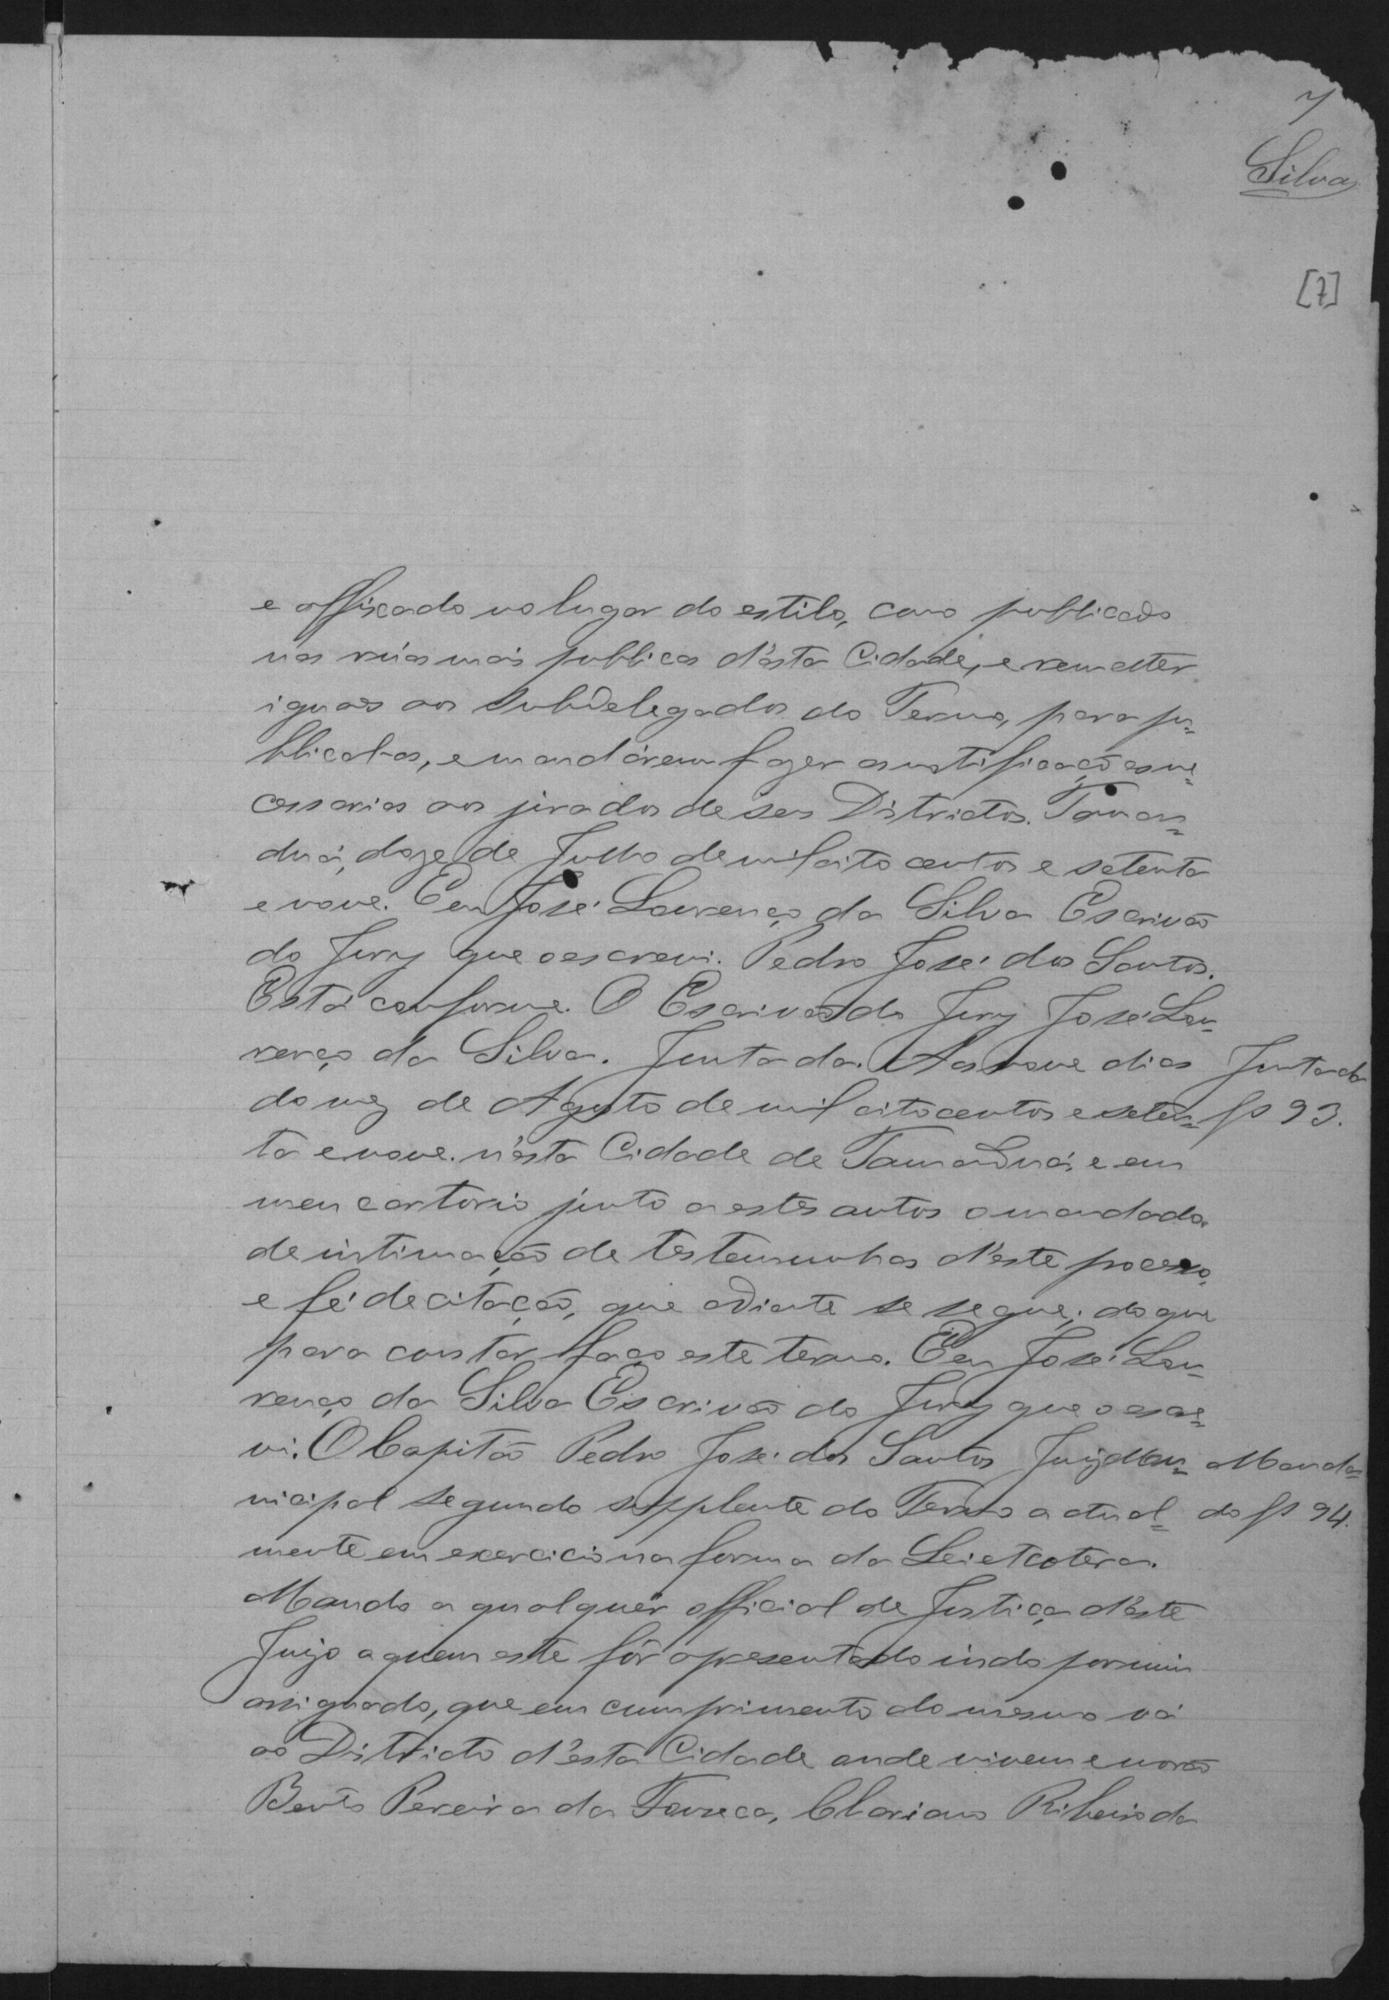 7
Silva
[7]
e affixado no lugar do estilo, como publicado
nas ruas mais publicas d'esta Cidade, e remetter
iguaes aos Subdelegados do Termo, para pu=
blical-os, e mandárem fazer as notificações ne=
cessarias aos jurados de seus Districtos. Taman=
duá, doze de Julho de mil oito centos e setenta
e nove. Eu José Lourenço da Silva Escrivão
do Jury que o escrevi. Pedro José dos Santos.
Está conforme. O Escrivão do Jury José Lou=
renço da Silva. Juntada. Aos nove dias
Juntada
do mez de Agosto de mil oitocentos e seten=
fls 93.
ta e nove. n'esta Cidade de Tamanduá, e em
meu cartorio junto a estes autos o mandado
de intimação de testemunhas d'este processo,
e fé de citação, que adiante se segue; do que
para constar faço este termo. Eu José Lou=
renço da Silva Escrivão do Jury que o escre=
vi. O Capitão Pedro José dos Santos Juiz Mu=
Manda=
nicipal segundo supplente do Termo actual=
do fls 94.
mente em exercicio na forma da Lei etcetera.
Mando a qualquér official de Justiça d'este
Juizo a quem este fôr apresentado indo por mim
assignado, que em cumprimento do mesmo vá
ao Districto d'esta Cidade onde vivem e morão
Bento Pereira da Fonseca, Clariano Ribeiro da